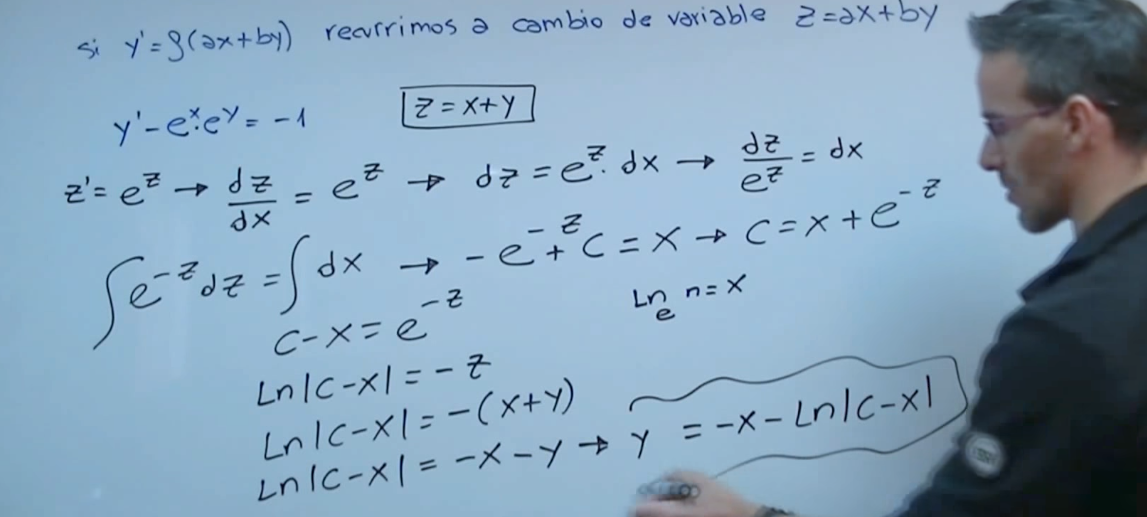 si y'=f(ax+by) recurrimos a cambio de variable z=ax+by
y'-e^x·e^y=-1 z=x+y
z'=e^z → dz/dx = e^z → dz=e^z·dx → dz/e^z = dx
∫e^-z dz = ∫dx → -e^-z + C = x → C=x+e^-z
C-x=e^-z Ln_e n=x
Ln|C-x|=-z
Ln|C-x|=-(x+y)
Ln|C-x|=-x-y → y =-x-Ln|C-x|